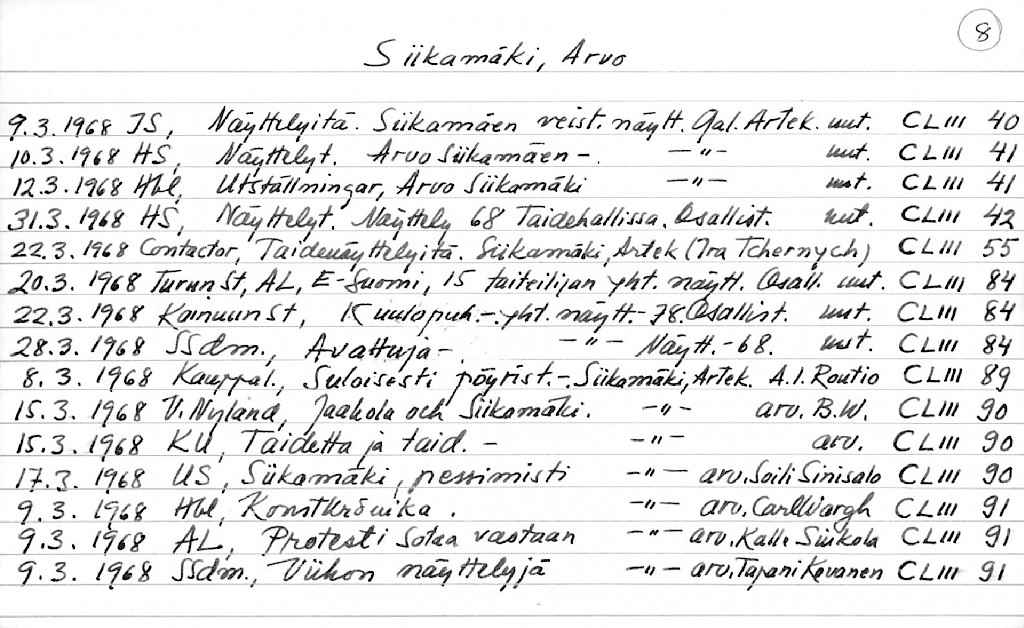 8
Siikamäki, Arvo
9.3.1968 IS, Näyttelyitä. Siikamäen veist. näytt. Gal. Artek. uut. CLIII 40
10.3.1968 HS, Näyttelyt. Arvo Siikamäen -. —"— uut. CLIII 41
12.3.1968 Hbl, Utställningar, Arvo Siikamäki —"— uut. CLIII 41
31.3.1968 HS, Näyttelyt. Näyttely 68 Taidehallissa. Osallist. uut. CLIII 42
22.3.1968 Contactor, Taidenäyttelyitä. Siikamäki, Artek (Ira Tchernych) CLIII 55
20.3.1968 Turun St, AL, E-Suomi, 15 taiteilijan yht. näytt. Osall. uut. CLIII 84
22.3.1968 Kainuun St, Kuulopuh.-. yht. näytt.- 78. Osallist. uut. CLIII 84
28.3.1968 SSdm., Avattuja -. —"— Näytt.-68. uut. CLIII 84
8.3.1968 Kauppal., Suloisesti pöyrist.-. Siikamäki, Artek. A.I. Routio CLIII 89
15.3.1968 V. Nyland, Jaakola och Siikamäki. —"— arv. B.W. CLIII 90
15.3.1968 KU, Taidetta ja taid. - —"— arv. CLIII 90
17.3.1968 US, Siikamäki, pessimisti —"— arv. Soili Sinisalo CLIII 90
9.3.1968 Hbl, Konstkrönika. —"— arv. Carl Wargh CLIII 91
9.3.1968 AL, Protesti sotaa vastaan —"— arv. Kalle CLIII 91
9.3.1968 SSdm., Viikon näyttelyjä —"— arv. Tapani Kovanen CLIII 91